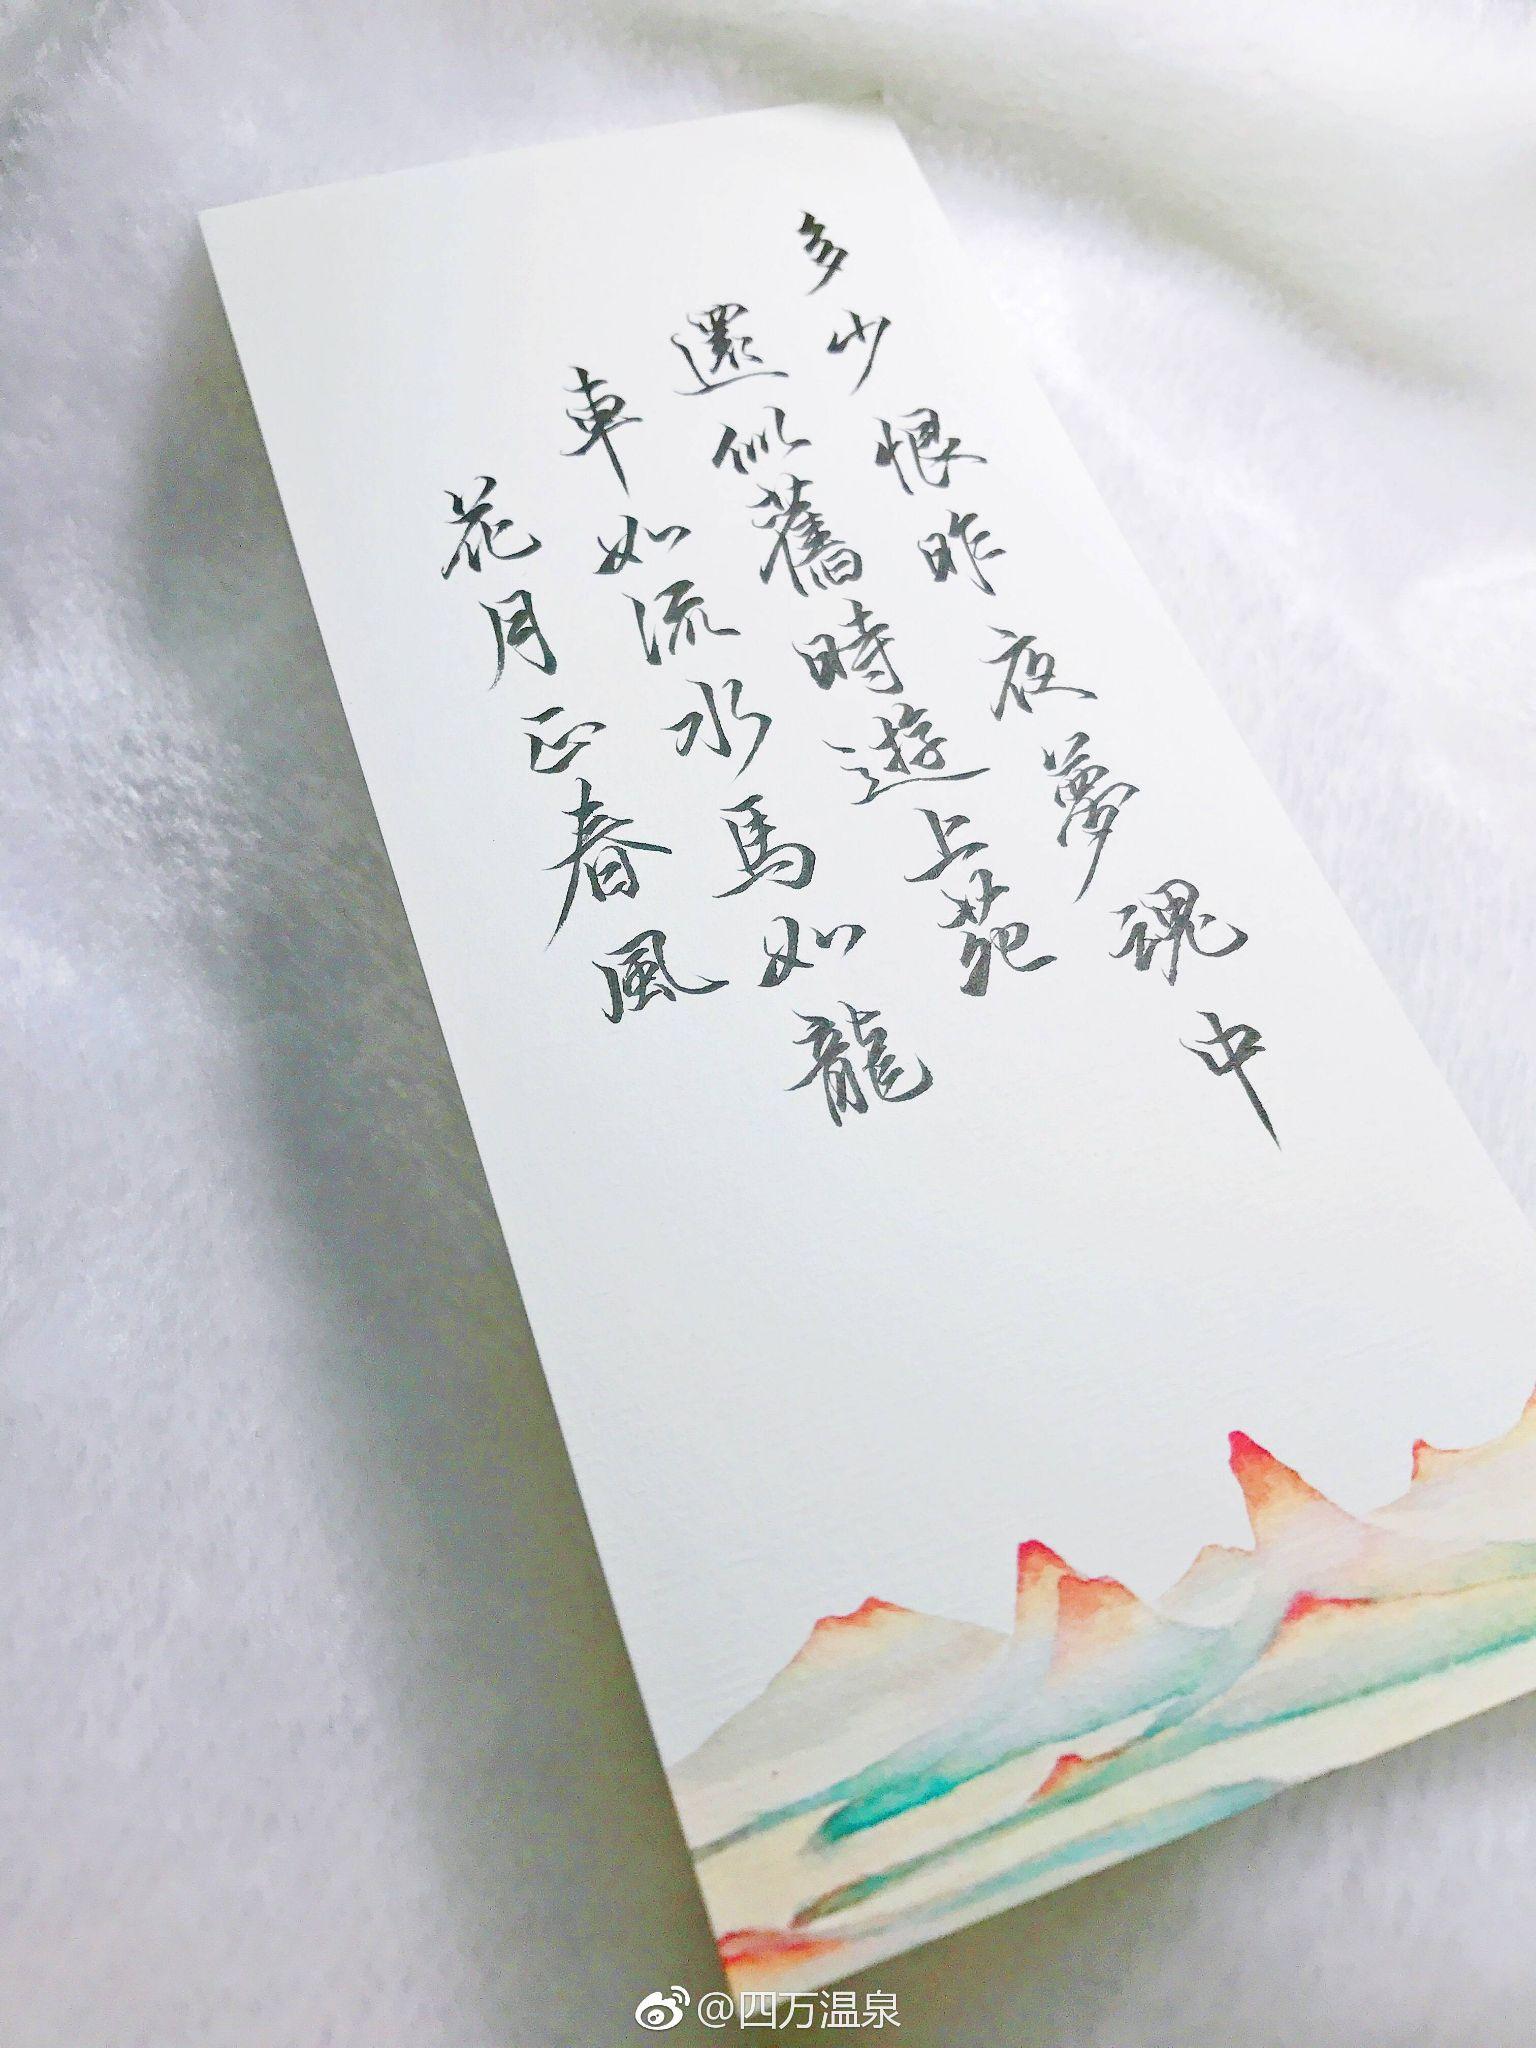 多少恨昨夜夢魂中
還似舊時遊上苑
車如流水馬如龍
花月正春風
@四万温泉